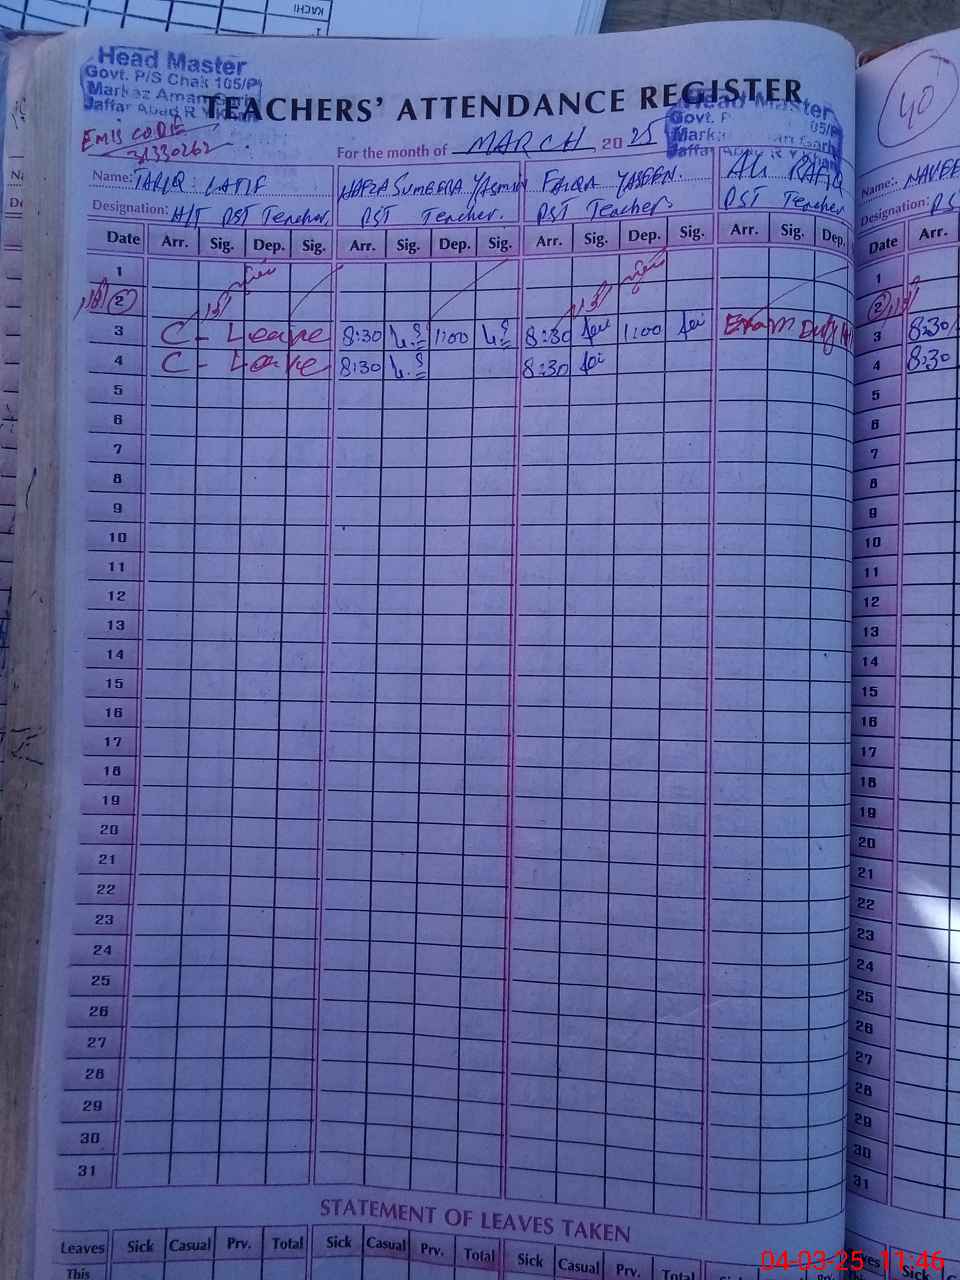 KACHI
Head Master
Govt. P/S Chak 105/P
Markaz Aman Garh
Jaffar Abad R Y Khan
TEACHERS' ATTENDANCE REGISTER
Head Master
Govt. P 05/P
Marka Garh
Jaffar R Y Khan
40
EMIS CODE
31330262
For the month of MARCH 2025
Name: TARIQ LATIF
HAFZA SUMEERA YASMIN
FAIQA YASEEN.
ALI RAFIQ
Name:
Designation: H/T PST Teacher
PST Teacher.
PST Teacher.
PST Teacher
Designation: PS
Date Arr. Sig. Dep. Sig. Arr. Sig. Dep. Sig. Arr. Sig. Dep. Sig. Arr. Sig. Dep. Date Arr.
1 1
2 2
3 C - Leave 8:30 1:00 8:30 1:00 Exam Duty 3 8:30
4 C - Leave 8:30 8:30 4 8:30
5 5
6 6
7 7
8 8
9 9
10 10
11 11
12 12
13 13
14 14
15 15
16 16
17 17
18 18
19 19
20 20
21 21
22 22
23 23
24 24
25 25
26 26
27 27
28 28
29 29
30 30
31 31
STATEMENT OF LEAVES TAKEN
Leaves Sick Casual Prv. Total Sick Casual Prv. Total Sick Casual Prv. Total Sick
This
04-03-25 11:46